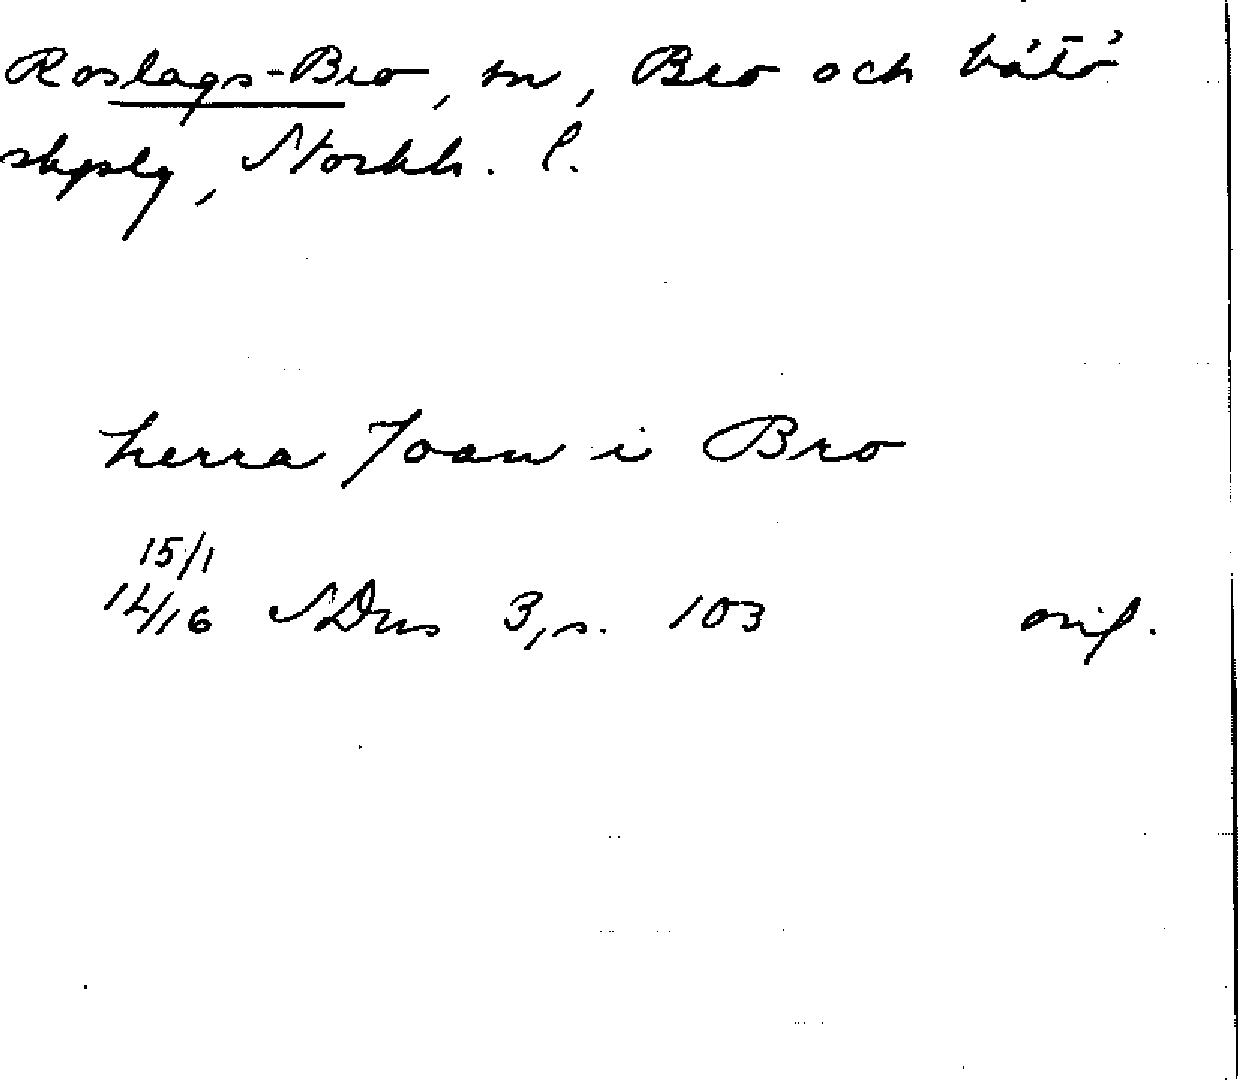 Roslags-Bro, sn, Bro och Vätö
skpslg, Stockh. l.
herra Joan i Bro
15/1
14/16 SDns 3, s. 103 orig.